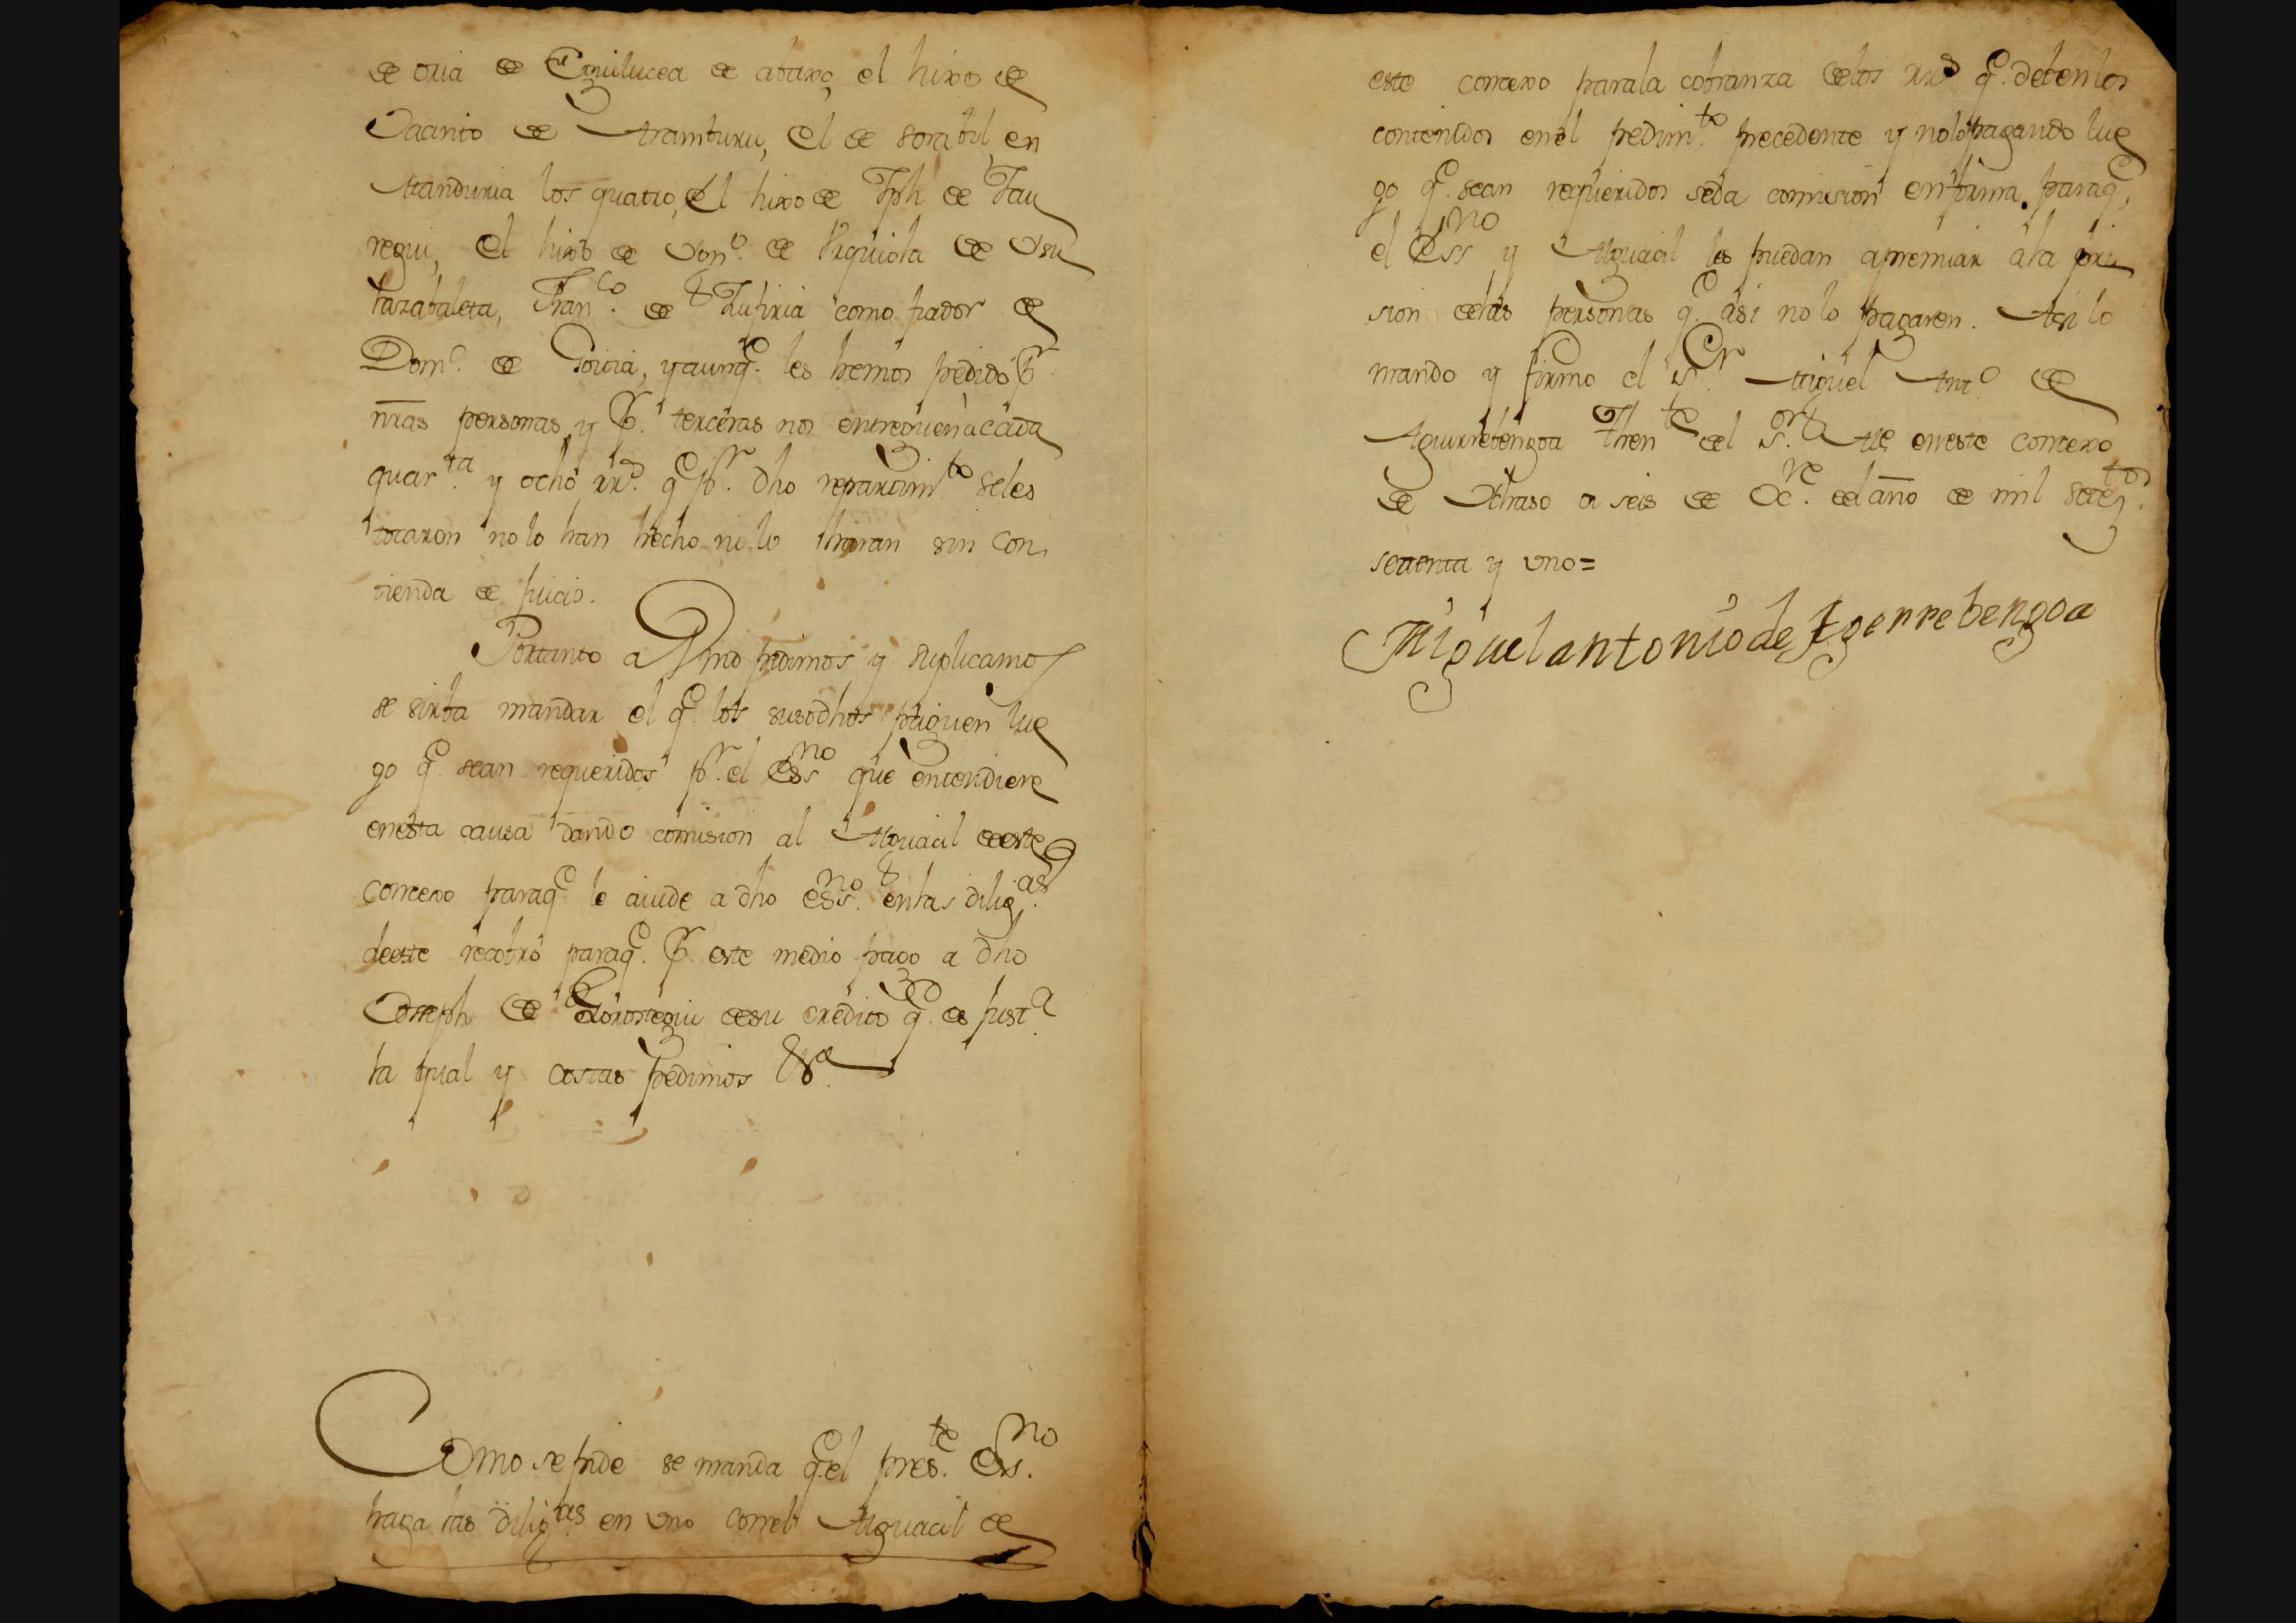 de oria de Eguilucea de abaxo, el hixo de
Jacinto de Aramburu, el de Sorabil en
Anduria los quatro, el hixo de Jph de Jau
regui, el hixo de Dom.o de Urquiola de Usu
larabaleta, Fran.co de Zufiria como fiador de
Dom.o de Goitia, y aunq.e les hemos pedido p.r
nras personas y p.r terceras nos entreguen a cada
quar.ta y ocho rr.s q.e p.r dho repartim.to se les
tocaron no lo han hecho ni lo haran sin con
tienda de juicio.
Portanto a Vmd pedimos y suplicamos
se sirba mandar el q.e los susodhos paguen lue
go q.e sean requeridos p.r el Ess.no que entendiere
enesta causa dando comision al Alguacil deeste
concexo paraq.e le aiude a dho Ess.no enlas dilig.as
deeste recobro paraq.e p.r este medio pago a dho
Joseph de Gorostegui desu credito q.e es just.a
la qual y costas pedimos &.a
Como se pide se manda q.e el pres.te Ess.no
haga las dilig.as en uno conel Alguacil de
este concexo parala cobranza delos rr.s q.e deben los
contenidos enel pedim.to precedente y nolo pagando lue
go q.e sean requeridos seda comision enforma paraq.e
el Ess.no y Alguacil les puedan apremiar ala pri
sion delas personas q.e asi no lo pagaren. Asi lo
mando y firmo el s.or Miguel Ant.o de
Aguirrebengoa Then.te del s.or Alc.e eneste concexo
de Astraso a seis de Oc.re del año de mil setez.tos
settenta y uno=
Miguel antonio de Agerrebengoa